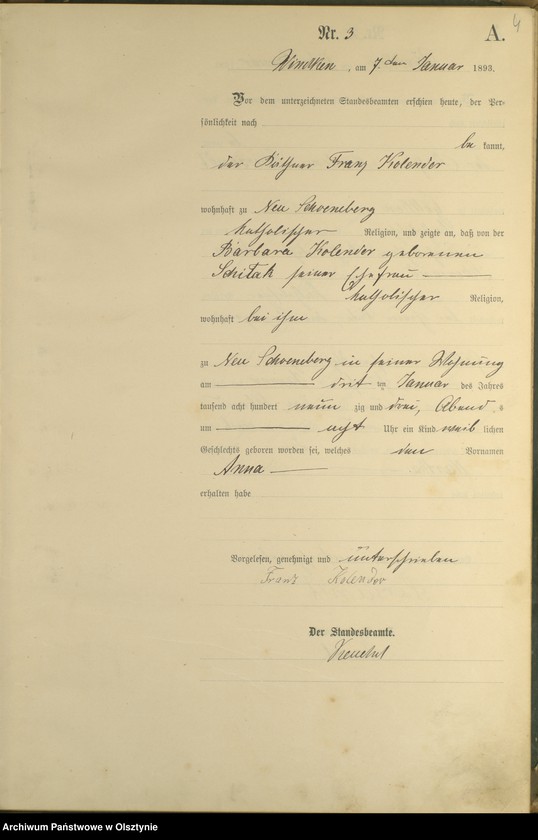 4
Nr. 3 A.
Windken, am 7. ten Januar 1893.
Vor dem unterzeichneten Standesbeamten erschien heute, der Per-
sönlichkeit nach
be kannt,
der Käthner Franz Kolender
wohnhaft zu Neu Schoeneberg
katholischer Religion, und zeigte an, daß von der
Barbara Kolender geborenen
Schitak seiner Ehefrau
katholischer Religion,
wohnhaft bei ihm
zu Neu Schoeneberg in seiner Wohnung
am drit ten Januar des Jahres
tausend acht hundert neun zig und drei, Abend s
um acht Uhr ein Kind weib lichen
Geschlechts geboren worden sei, welches den Vornamen
Anna
erhalten habe
Vorgelesen, genehmigt und unterschrieben
Franz Kolender
Der Standesbeamte.
Archiwum Państwowe w Olsztynie